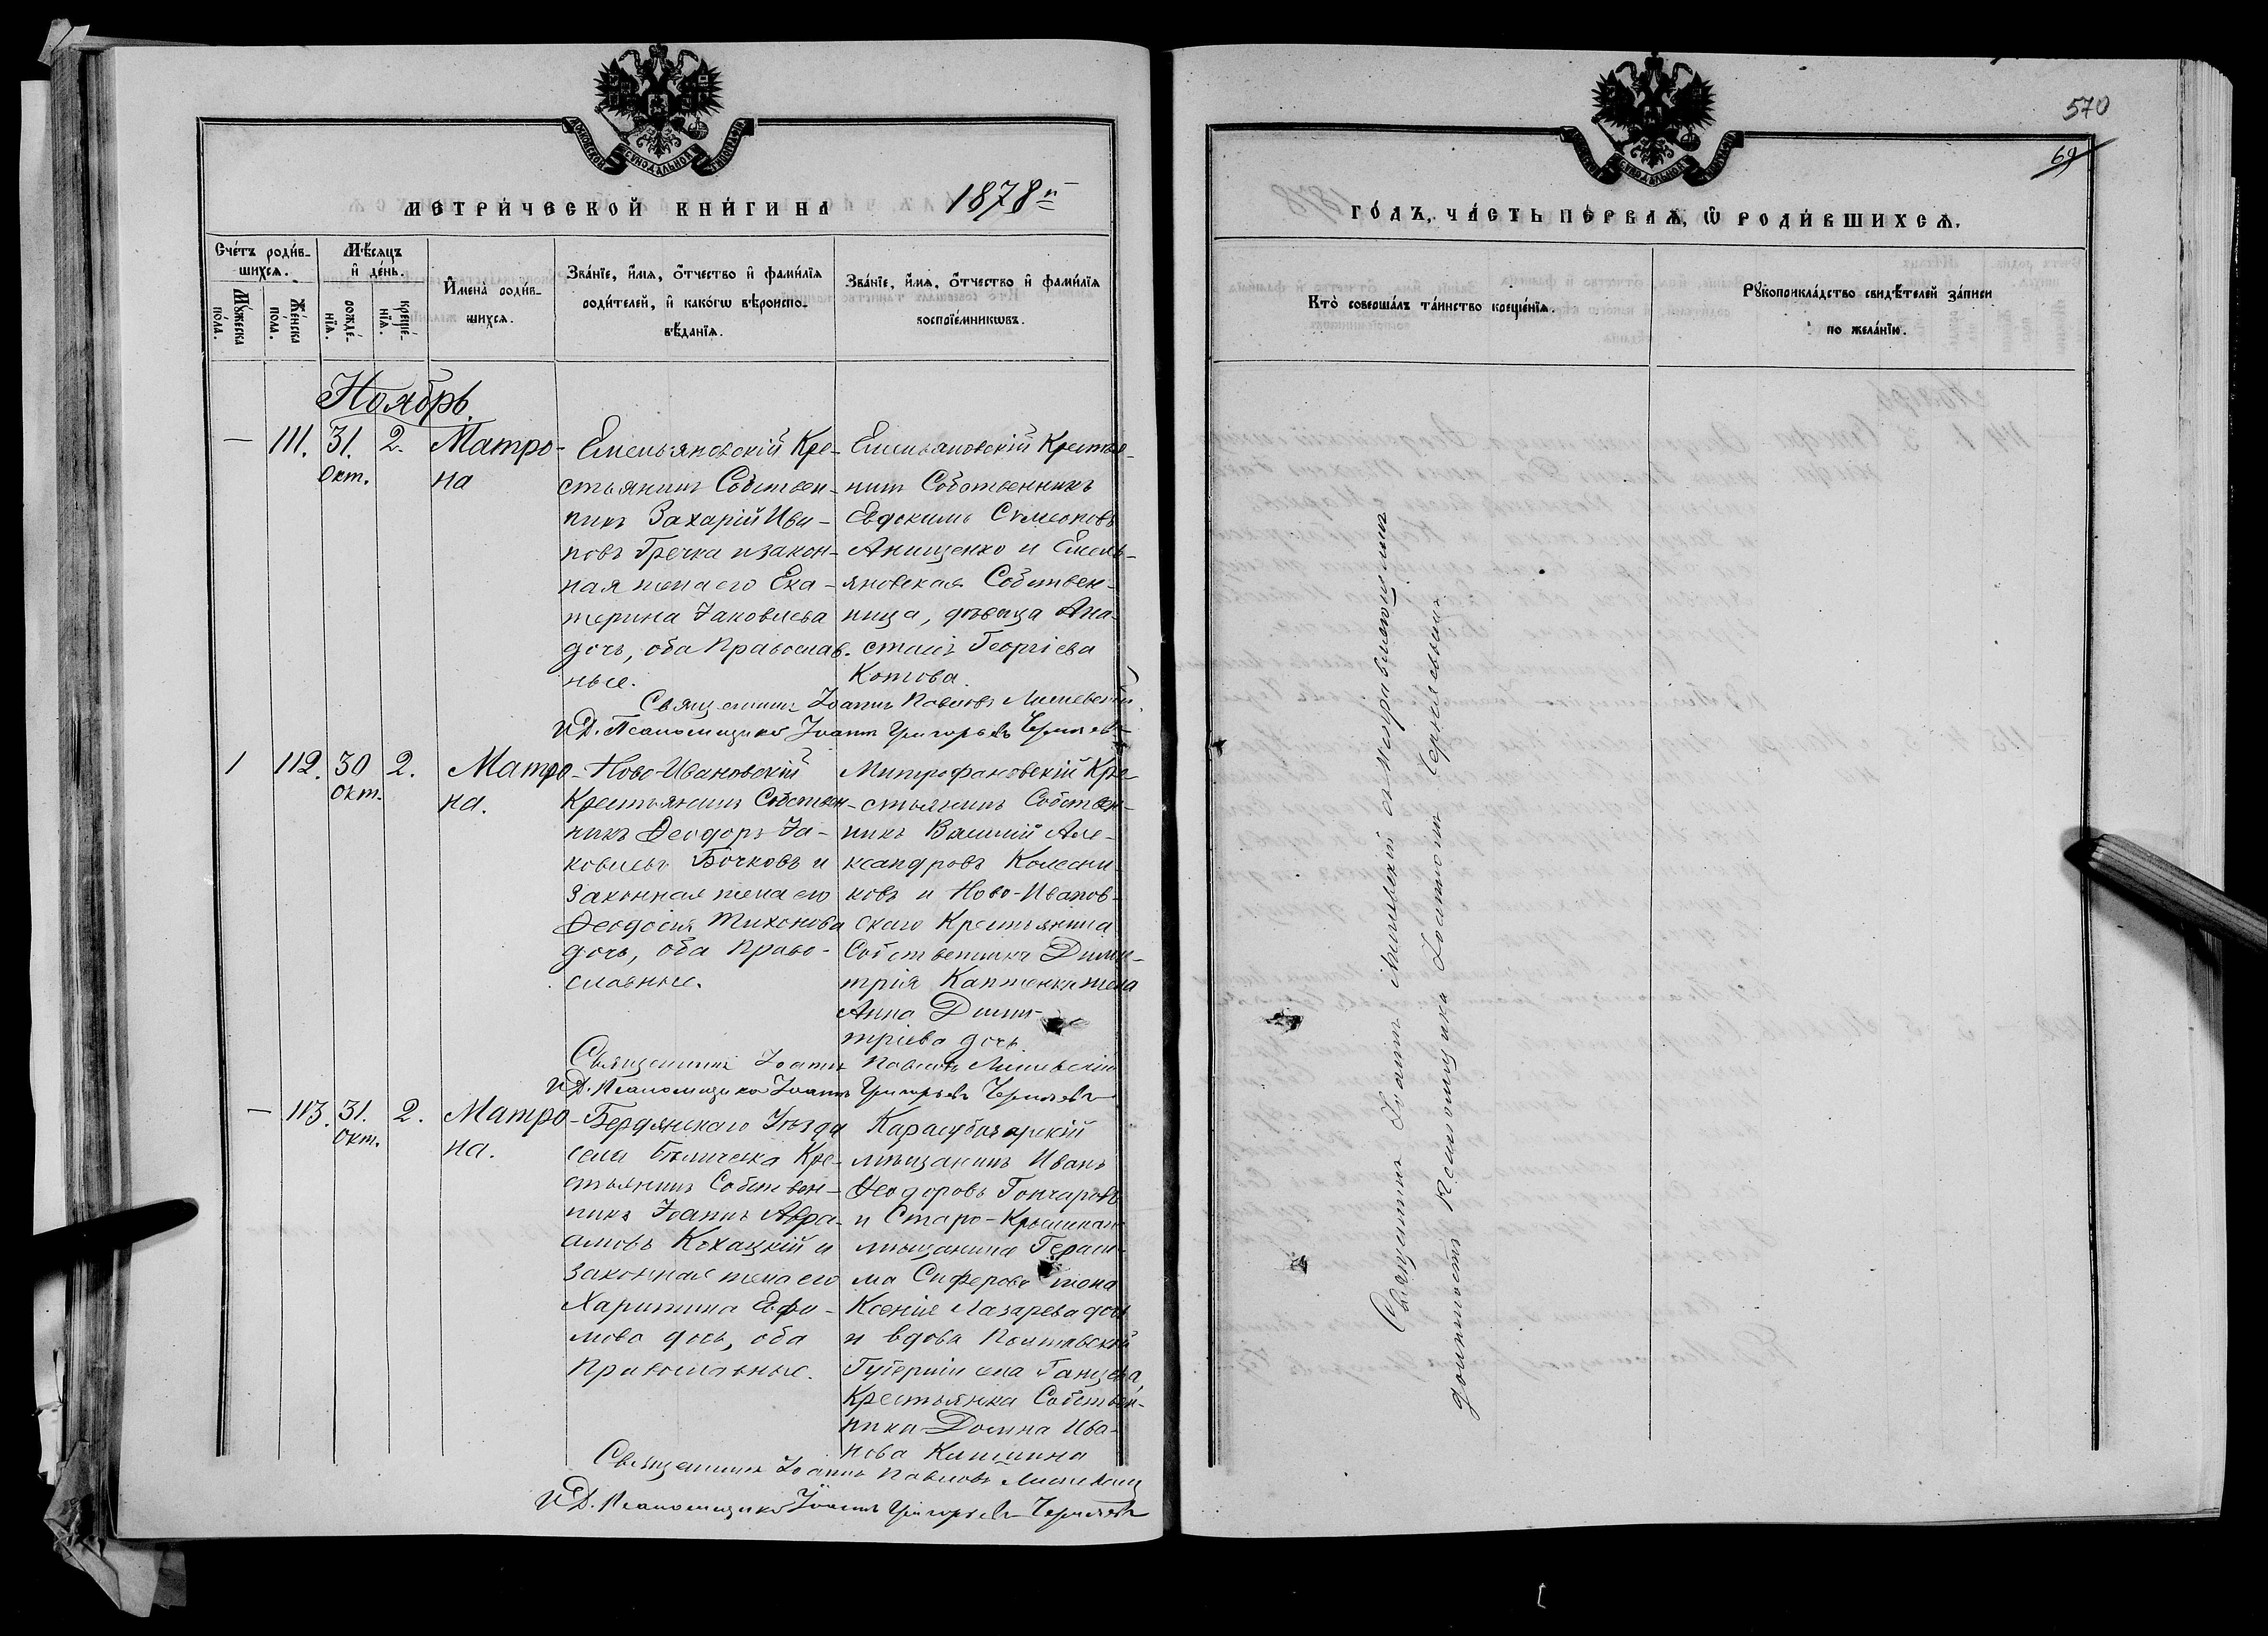 МЕТРИ́ЧЕСКОЙ КНИ́ГИ НА 1878й
Сче́тъ роди́в-
шихсѧ.
Мꙋ́жеска
по́ла.
Же́нска
по́ла.
Мѣ́сѧцъ
и҆ де́нь.
рожде́-
нїѧ.
креще́-
нїѧ.
И҆мена̀ роди́в-
шихсѧ.
Зва́нїе, и҆́мѧ, ѻ҆́тчество и҆ фами́лїѧ
роди́телей, и҆ како́гѡ вѣроиспо-
вѣ́данїѧ.
Зва́нїе, и҆́мѧ, ѻ҆́тчество и҆ фами́лїѧ
воспрїе́мникѡвъ.
Ноябрь.
— 111. 31. 2. Матро-
Окт. на
Емельяновскій Кре-
стьянинъ Собствен-
никъ Захарій Ива-
новъ Гречка и закон-
ная жена его Ека-
терина Іаковлева
дочь, оба Православ-
ные.
Емельяновскій Крестья-
нинъ Собственникъ
Евдокимъ Сѵмеоновъ
Анищенко и Емель-
яновская Собствен-
ница, дѣвица Ана-
стасія Георгіева
Котова
Священникъ Іоаннъ Павловъ
И.Д. Псаломщика Іоаннъ Григорьевъ Чернявъ
1 112. 30 2. Матро-
Окт. на.
Ново-Ивановскій
Крестьянинъ Собствен-
никъ Ѳеодоръ Іа-
ковлевъ Бочковъ и
законная жена его
Ѳеодосія Тихонова
дочь, оба Право-
славные.
Митрофановскій Кре-
стьянинъ Собствен-
никъ Василій Але-
ксандровъ Колесни-
ковъ и Ново-Иванов-
скаго Крестьянина
Собственника Дими-
трія жена
Анна Дими-
тріева дочь.
Священникъ Іоаннъ Павловъ
И.Д. Псаломщика Іоаннъ Григорьевъ Чернявъ
— 113. 31. 2. Матро-
Окт. на.
Бердянскаго Уѣзда
села Кре-
стьянинъ Собствен-
никъ Іоаннъ Авра-
амовъ и
законная жена его
Харитина Ефи-
мова дочь, оба
Православные.
Карасубазарскій
мѣщанинъ Иванъ
Ѳеодоровъ Гончаровъ
и Старо-
мѣщанина Гераси-
ма жена
Ксенія Лазарева дочь
и вдова Полтавской
Губерніи села
Крестьянка Собствен-
ника Домна Ива-
нова
Священникъ Іоаннъ Павловъ
И.Д. Псаломщика Іоаннъ Григорьевъ Чернявъ
570
69
ГО́ДЪ, ЧА́СТЬ ПЕ́РВАѦ, Ѽ РОДИ́ВШИХСѦ.
Кто̀ соверша́лъ та́инство креще́нїѧ.
Рꙋкоприкла́дство свидѣ́телей за́писи
по жела́нїю.
Священникъ Іоаннъ съ исправляющимъ
должность Псаломщика Іоанномъ